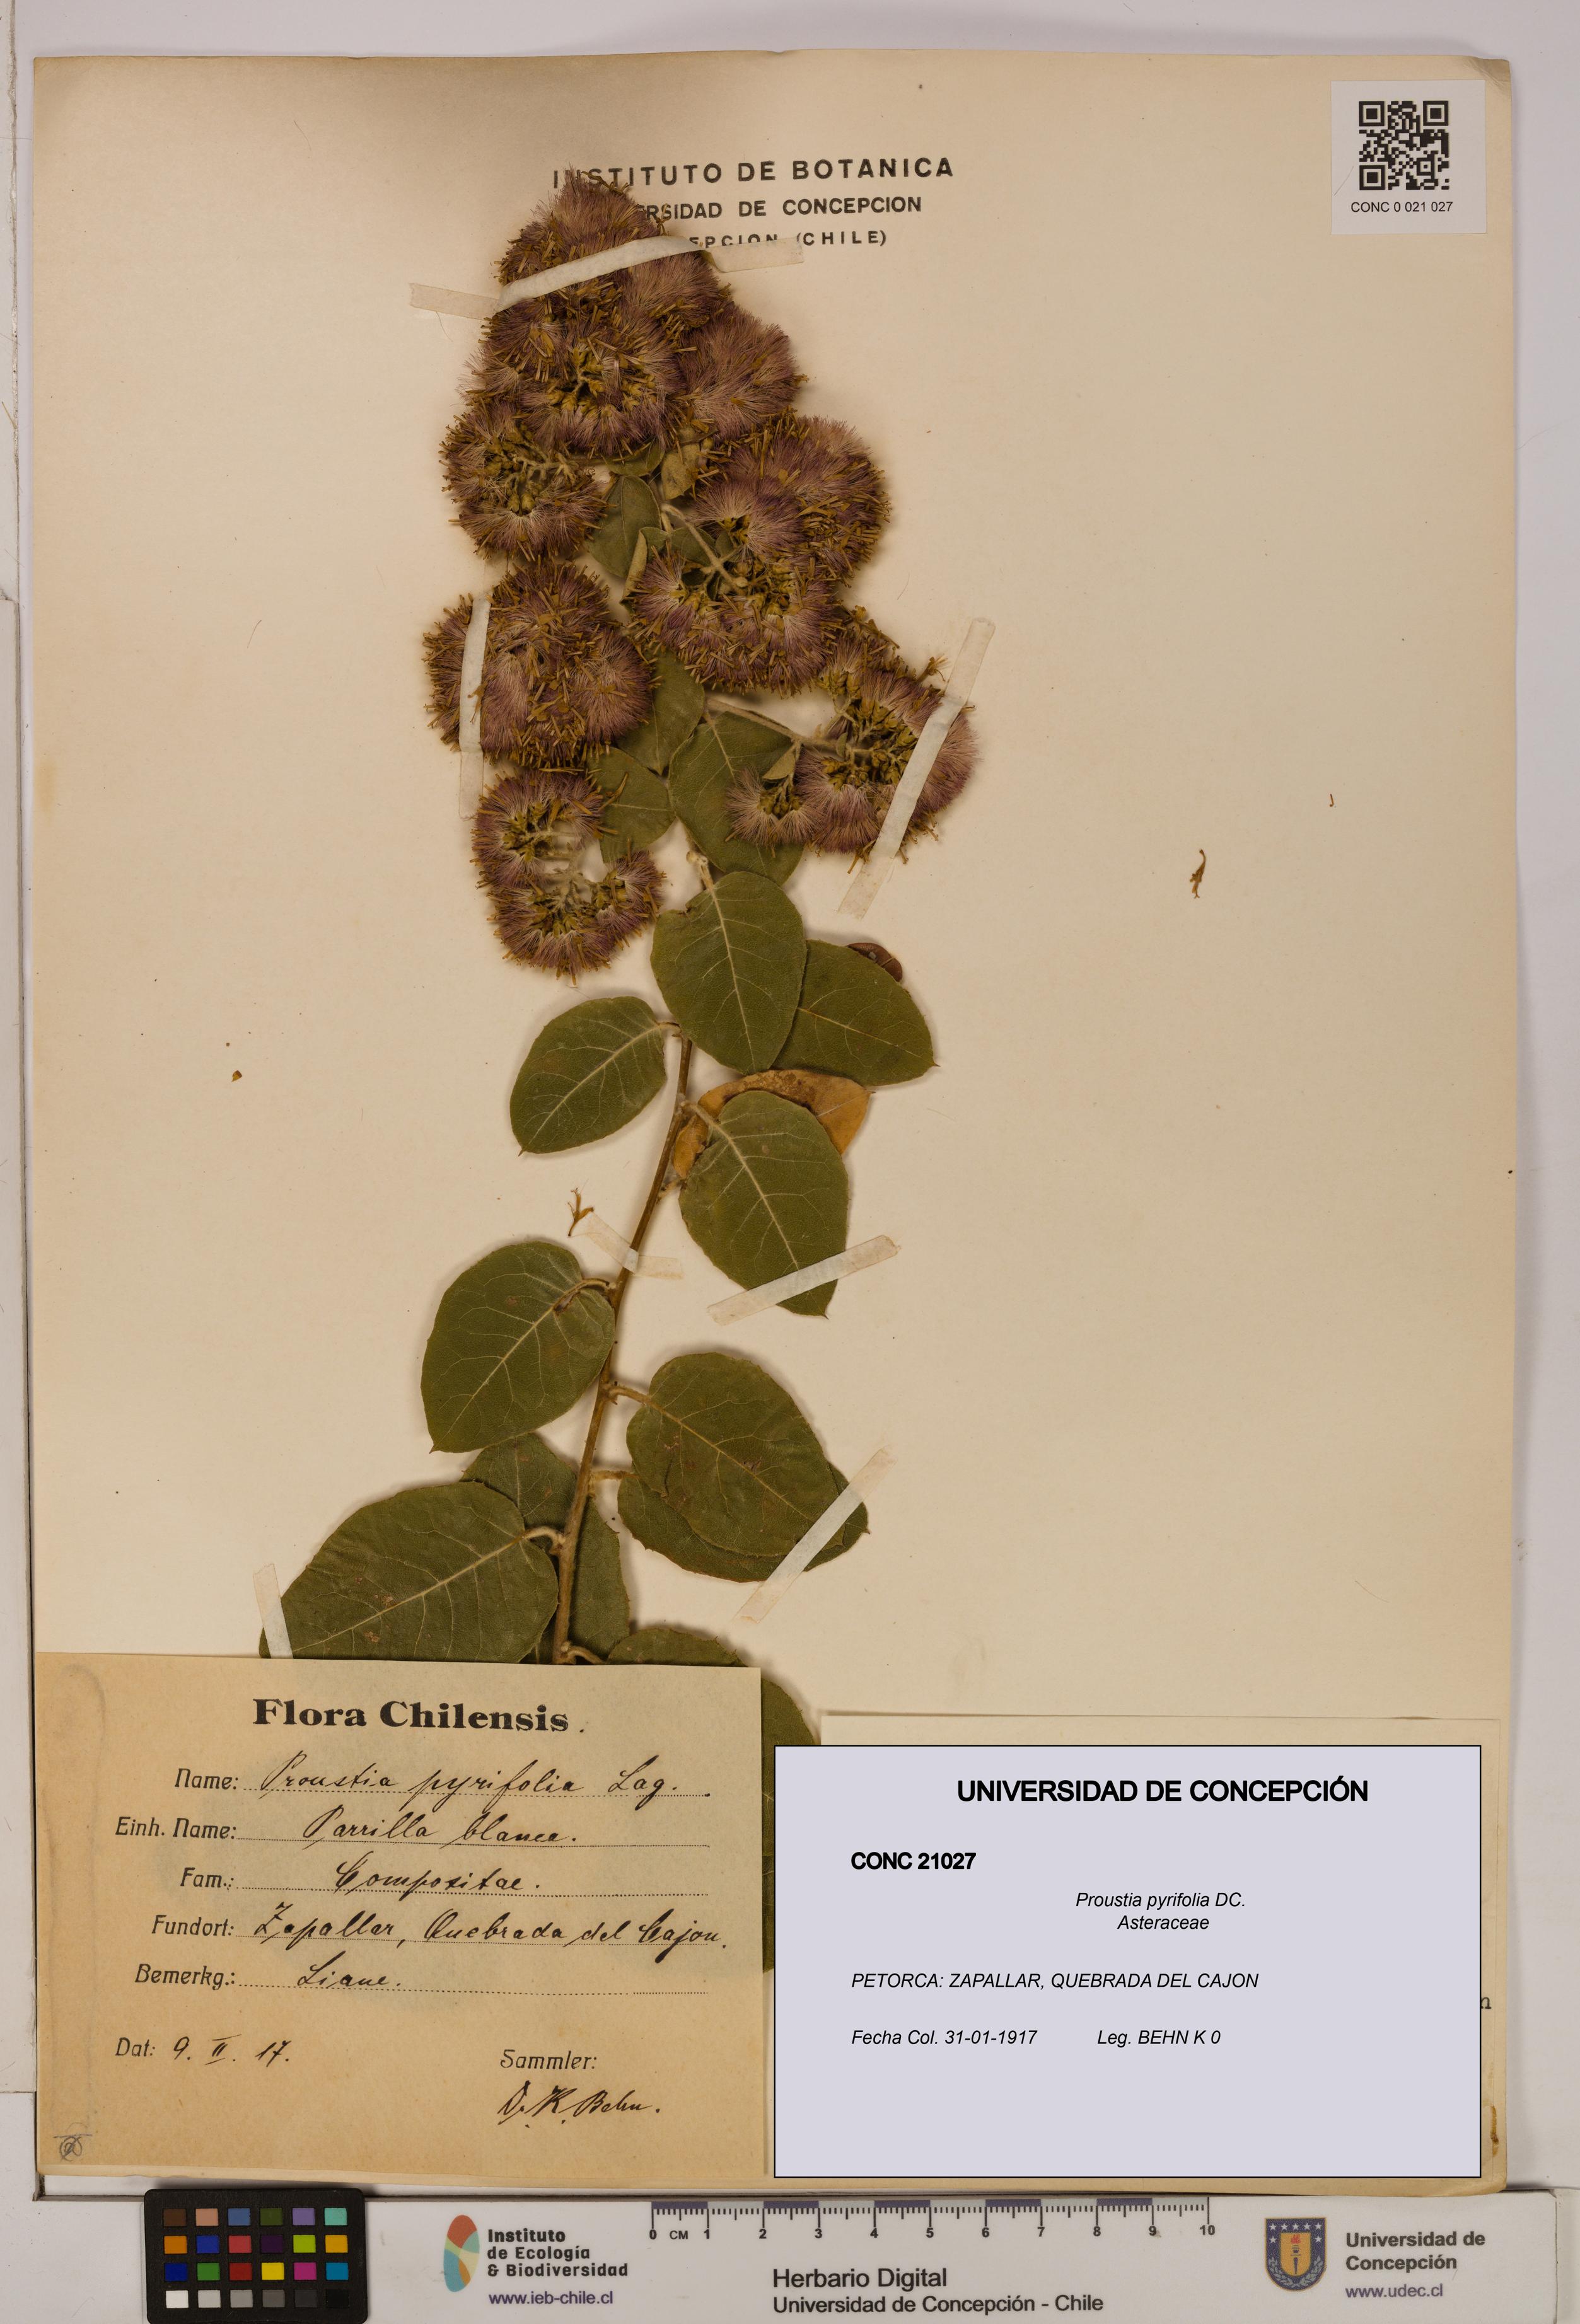 CONC 0 021 027
INSTITUTO DE BOTANICA
ERSIDAD DE CONCEPCION
EPCION (CHILE)
Flora Chilensis.
Name: Proustia pyrifolia Lag.
Einh. Name: Parrilla blanca.
Fam.: Compositae.
Fundort: Zapallar, Quebrada del Cajon.
Bemerkg.: Liane.
Dat: 9. II. 17.
Sammler:
Dr. K. Behn.
UNIVERSIDAD DE CONCEPCIÓN
CONC 21027
Proustia pyrifolia DC.
Asteraceae
PETORCA: ZAPALLAR, QUEBRADA DEL CAJON
Fecha Col. 31-01-1917 Leg. BEHN K 0
n
Instituto
de Ecología
& Biodiversidad
www.ieb-chile.cl
0 CM 1 2 3 4 5 6 7 8 9 10
Herbario Digital
Universidad de Concepción - Chile
Universidad de
Concepción
www.udec.cl